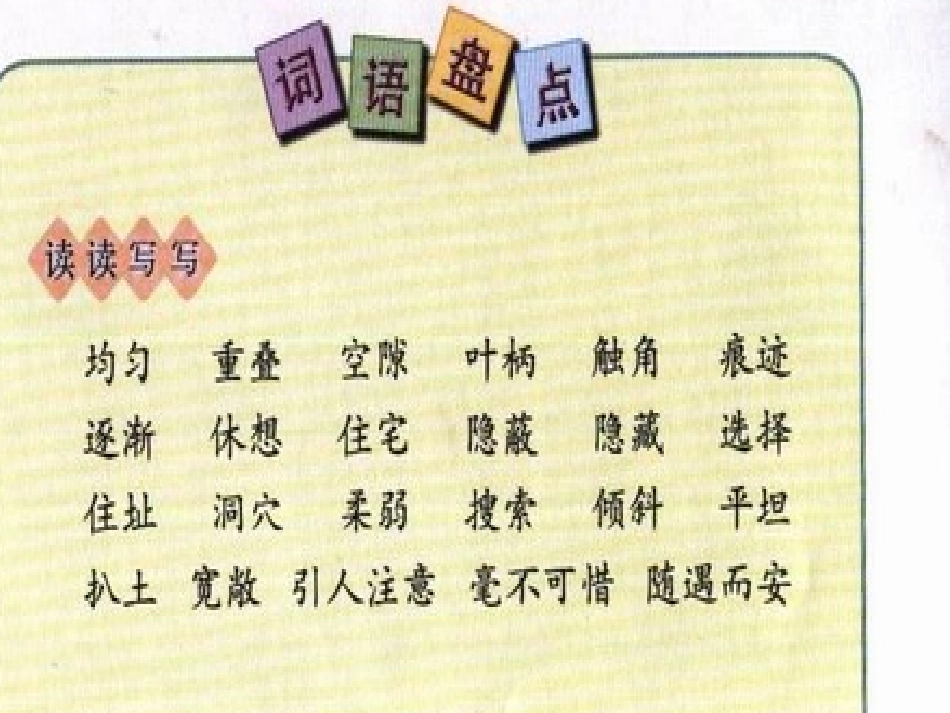 词语盘点
读读写写
均匀 重叠 空隙 叶柄 触角 痕迹
逐渐 休想 住宅 隐蔽 隐藏 选择
住址 洞穴 柔弱 搜索 倾斜 平坦
扒土 宽敞 引人注意 毫不可惜 随遇而安